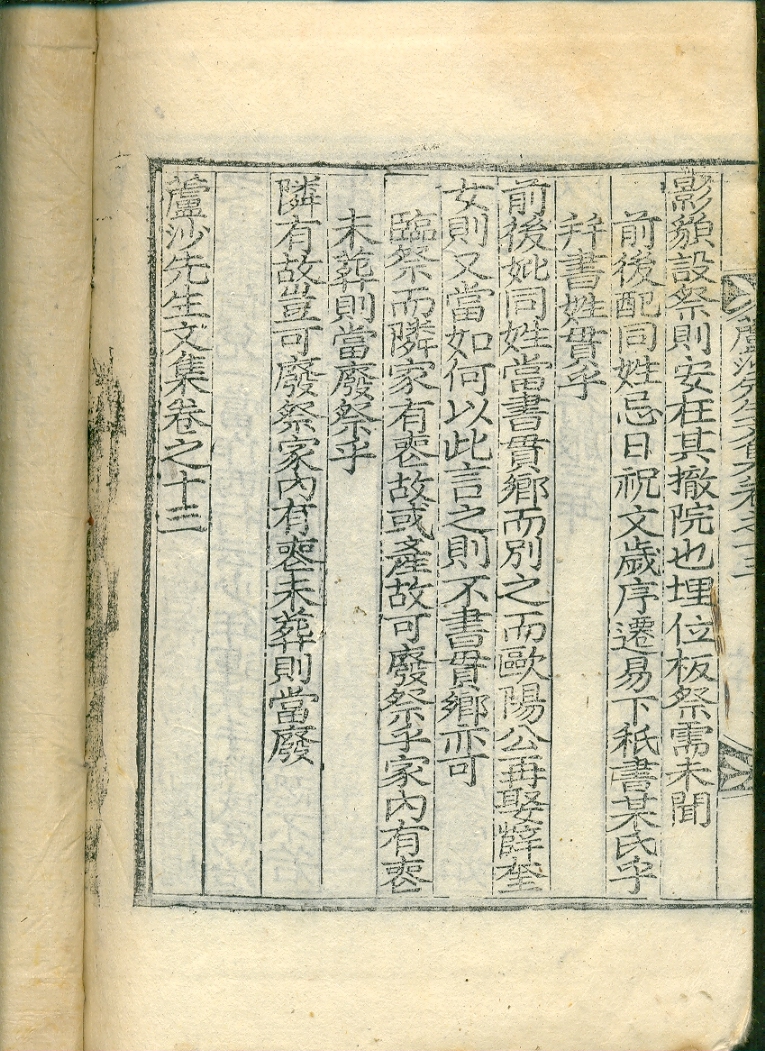 蘆沙先生文集卷之十三
影貌設祭則安在其撤院也埋位板祭需未聞
前後配同姓忌日祝文歲序遷易下秪書某氏乎
幷書姓貫乎
前後妣同姓當書貫鄕而別之而歐陽公再娶薛奎
女則又當如何以此言之則不書貫鄕亦可
臨祭而隣家有喪故或產故可廢祭乎家內有喪
未葬則當廢祭乎
隣有故豈可廢祭家內有喪未葬則當廢
蘆沙先生文集卷之十三